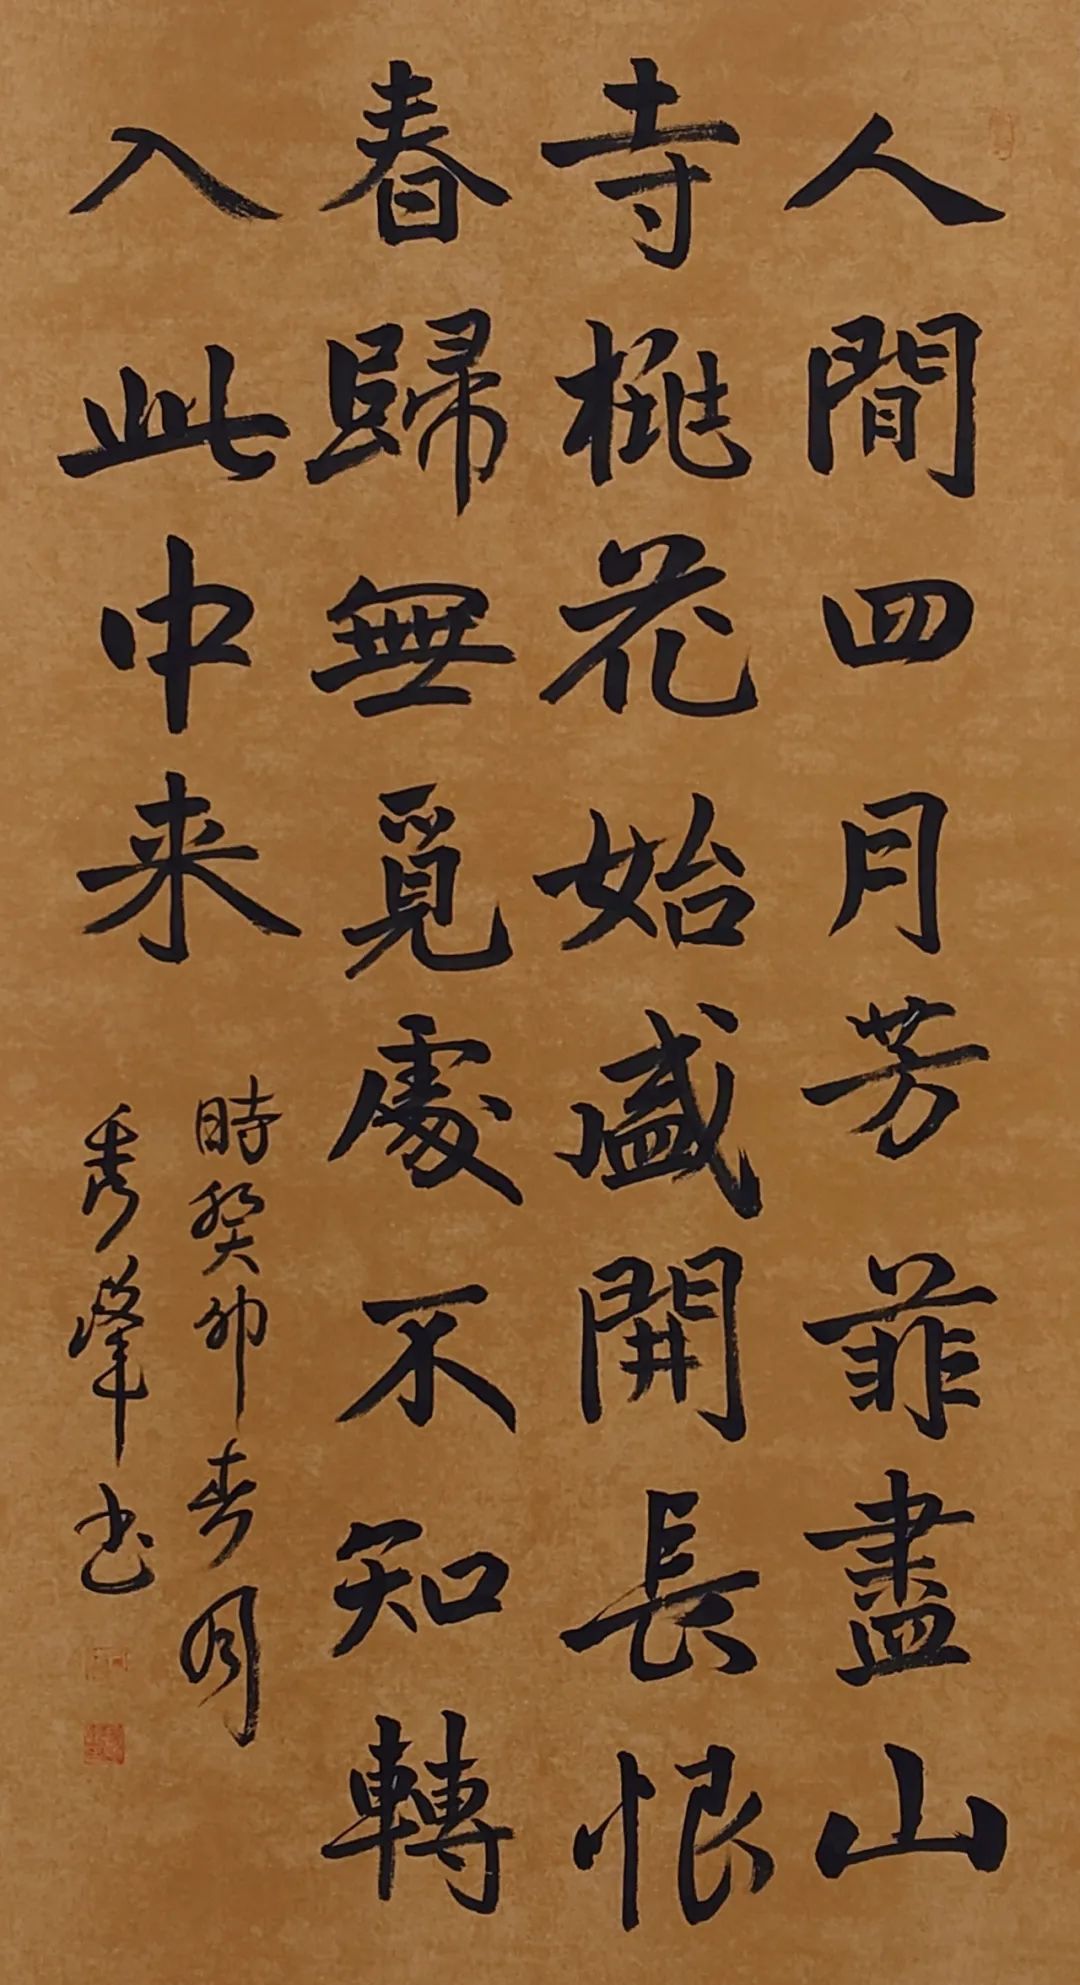 人間四月芳菲盡山
寺桃花始盛開長恨
春歸無覓處不知轉
入此中来
時癸卯春月
秀峰书